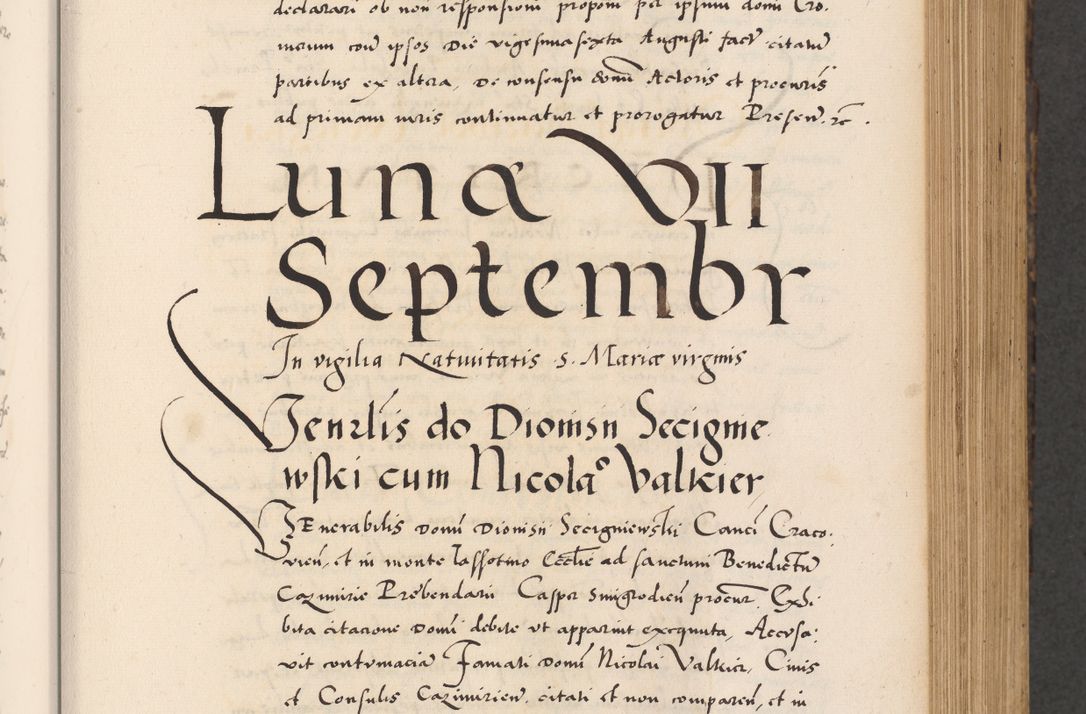 declarari ob non responsioni proponi per ipsum domi Cro.
inter ipsos Die vigesima sexta Augusti fact citatū
partibus ex altera, De consensu domi Actoris et procuris
ad primam iuris continuatur et prorogatur Presen. re.
Lunæ VII
Septembr
In vigilia Natiuitatis S. Mariæ virginis
Venrlis do Dionisii Secignie
wski cum Nicola⁰ Valkier
VEnerabilis Domi Dionisii Secigniewski Canci Craco.
vien, et in monte Lassotino Ecclie ad sanctum Benedictū
Cazimirie Prebendarii Casper Smigrodien procur. Exhi
bita citacione Domi debite vt apparuit exequuta, Accusa:
uit contumaciā Famati Domi Nicolai Valkier, Ciuis
et Consulis Cazimirien, citati et non comparen, et in